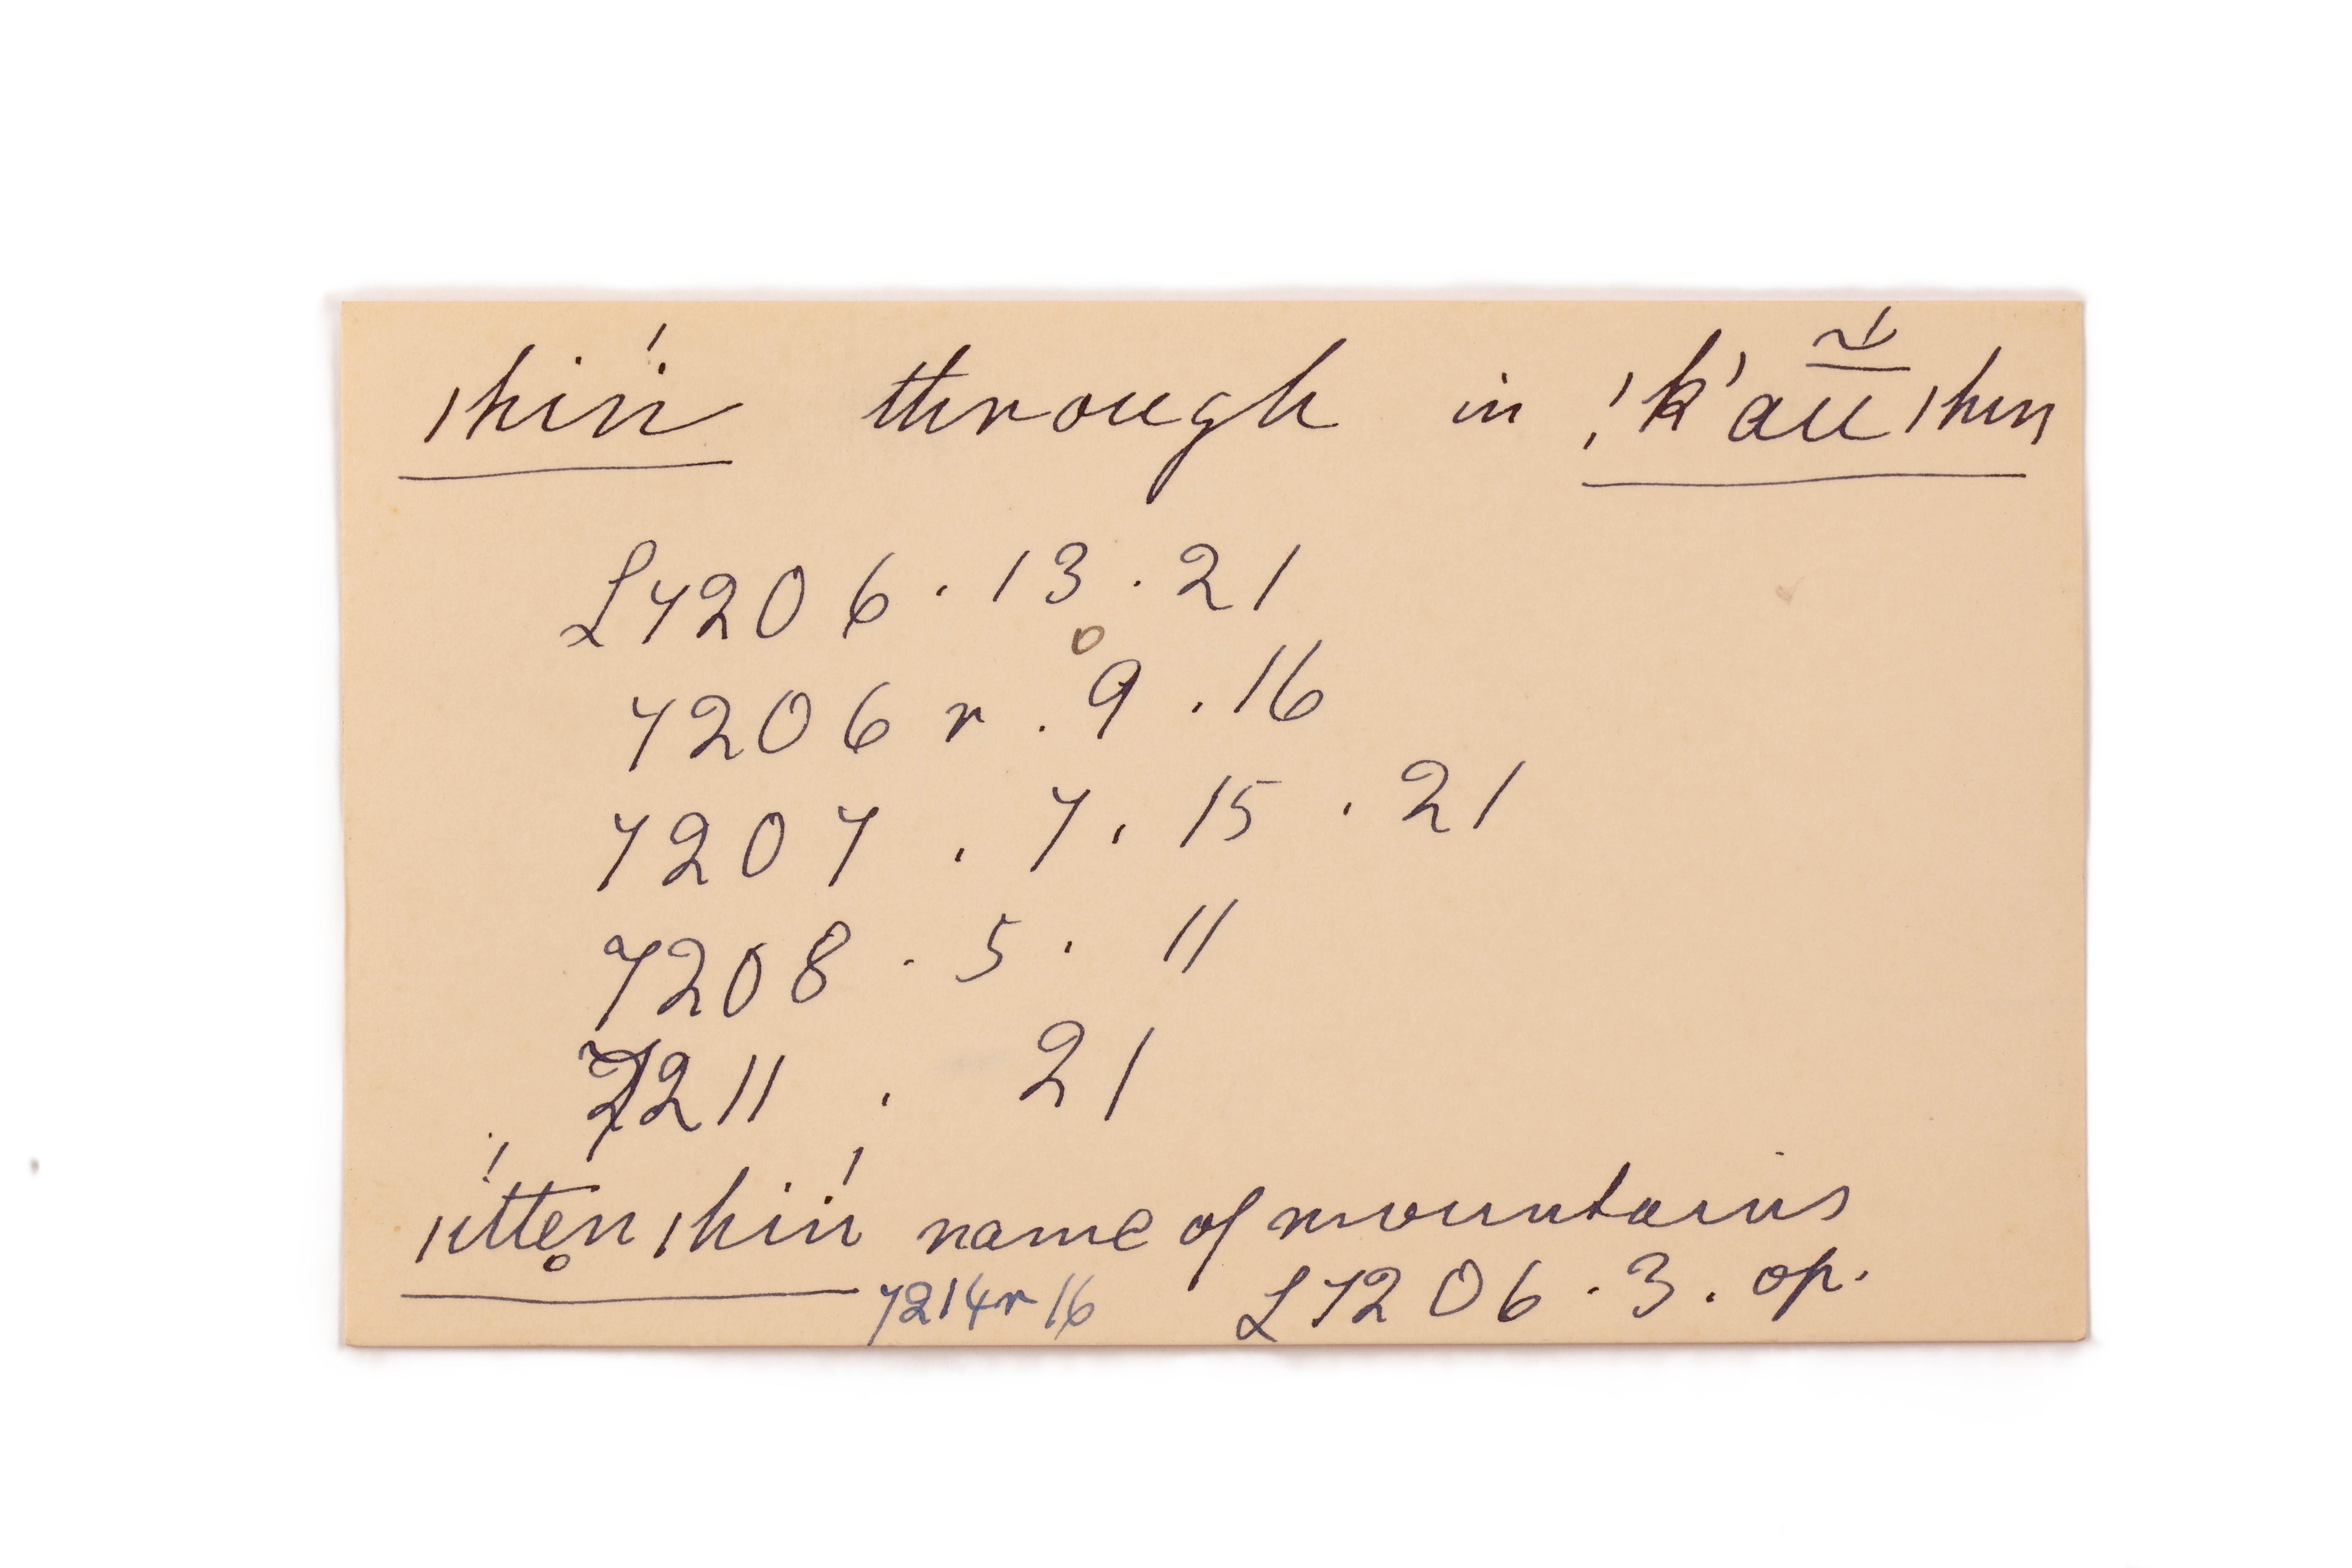 ǀhin̈́ through in ǃk'aū̯̃́ ǀhin
L7206 . 13 . 21
7206 r . 9 . 16
7207 . 7 . 15 . 21
7208 . 5 . 11
7211 . 21
ǀítten̥ ǀhiń name of mountains
7214r 16 L7206 . 3 . op.